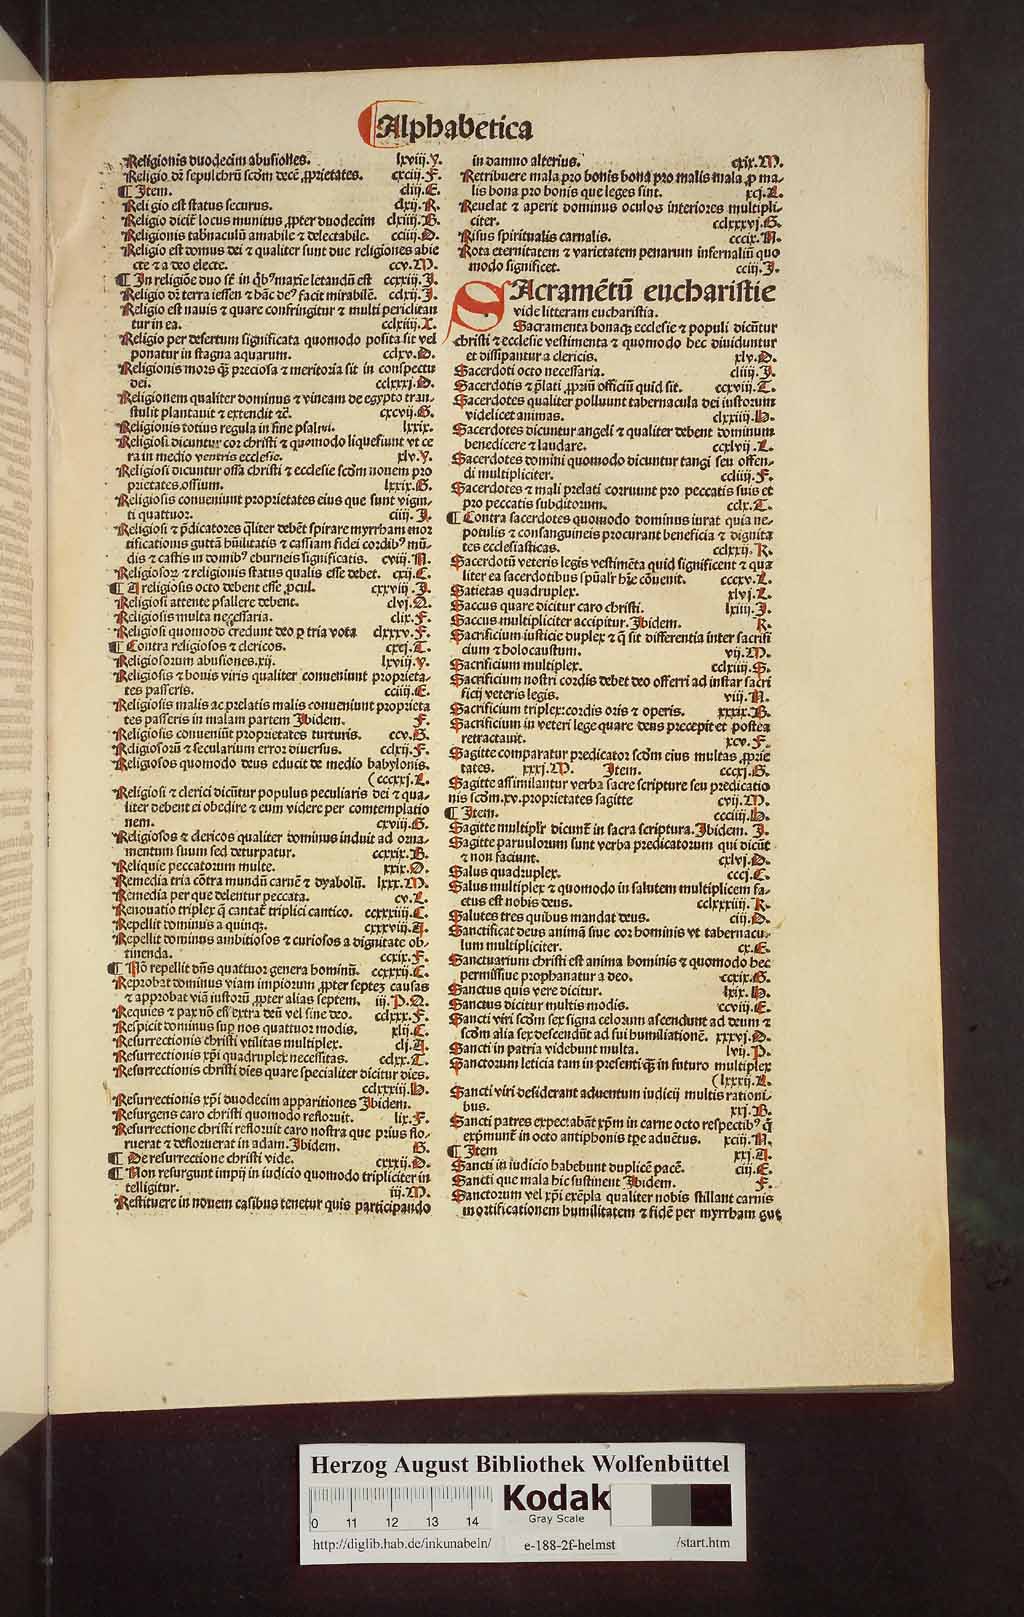 Alphabetica
Religionis duodecim abusiones. lxviij.Y.
Religio dr̄ sepulcrū scḋm decē ꝓprietates. cxciij.F.
¶ Item. cliij.E.
Religio est status securus. clxij.R.
Religio dicit̄ locus munitus ꝓpter duodecim clxiij.B.
Religionis tabnaculū amabile ⁊ delectabile. cciij.O.
Religio est domus dei ⁊ qualiter sunt due religiones abie
cte ⁊ a deo electe. ccv.M.
¶ In religiōe duo st̄ in qͥbꝰ marie letandū est ccxxiij.I.
Religio dr̄ terra iessen ⁊ hāc deꝰ facit mirabilē. cclxij.I.
Religio est nauis ⁊ quare confringitur ⁊ multi periclitan
tur in ea. cclxiiij.X.
Religio per desertum significata quomodo posita sit vel
ponatur in stagna aquarum. cclxv.O.
Religionis mors qꝫ preciosa ⁊ meritoria sit in conspectu
dei. cclxxxj.O.
Religionem qualiter dominus ⁊ vineam de egypto tran-
stulit plantauit ⁊ extendit ⁊c̄. cxcvij.G.
Religionis totius regula in fine psalmi. lxxix.
Religiosi dicuntur cor christi ⁊ quomodo liquefiunt vt ce
ra in medio ventris ecclesie. xlv.Y.
Religiosi dicuntur ossa christi ⁊ ecclesie scḋm nouem pro
prietates.ossium. lxxix.G.
Religiosis conueniunt proprietates eius que sunt vigin-
ti quattuor. ciiij.I.
Religiosi ⁊ p̄dicatores q̄liter debēt spirare myrrham mor
tificationis guttā hūilitatis ⁊ cassiam fidei cordibꝰ mū-
dis ⁊ castis in domibꝰ eburneis significatis. cviij.N.
Religiosoꝝ ⁊ religionis status qualis esse debet. cxij.C.
¶ A religiosis octo debent esse ꝓcul. cxxviij.I.
Religiosi attente psallere debent. clvj.Q.
Religiosis multa necessaria. clix.F.
Religiosi quomodo credunt deo ꝑ tria vota clxxxv.F.
¶ Contra religiosos ⁊ clericos. cxcj.T.
Religiosorum abusiones.xij. lxviij.Y.
Religiosis ⁊ bonis viris qualiter conueniunt proprieta-
tes passeris. cciiij.E.
Religiosis malis ac prelatis malis conueniunt proprieta
tes passeris in malam partem Ibidem. F.
Religiosis conueniūt proprietates turturis. ccv.G.
Religiosorū ⁊ secularium error diuersus. cclxij.F.
Religiosos quomodo deus educit de medio babylonis.
(ccccxxj.L.
Religiosi ⁊ clerici dicūtur populus peculiaris dei ⁊ qua-
liter debent ei obedire ⁊ eum videre per comtemplatio
nem. cxviij.G.
Religiosos ⁊ clericos qualiter dominus induit ad orna-
mentum suum sed deturpatur. ccxxix.B.
Reliquie peccatorum multe. xxix.O.
Remedia tria cōtra mundū carnē ⁊ dyabolū. lxxx.M.
Remedia per que delentur peccata. cv.L.
Renouatio triplex q̄ cantat̄ triplici cantico. ccxxxiiij.C.
Repellit dominus a quinqꝫ. cxxxviij.A.
Repellit dominus ambitiosos ⁊ curiosos a dignitate ob-
tinenda. ccxix.F.
¶ Nō repellit dn̄s quattuor genera hominū. ccxxxij.C.
Reprobat dominus viam impiorum ꝓpter septeꝫ causas
⁊ approbat viā iustorū ꝓpter alias septem. iij.P.Q.
Requies ⁊ pax nō est extra deū vel sine deo. cclxxx.F.
Respicit dominus suꝑ nos quattuor modis. xlij.C.
Resurrectionis christi vtilitas multiplex. clj.A.
Resurrectionis xp̄i quadruplex necessitas. cclxx.T.
Resurrectionis christi dies quare specialiter dicitur dies.
cclxxxiij.H.
Resurrectionis xp̄i duodecim apparitiones Ibidem.
Resurgens caro christi quomodo refloruit. lix.F.
Resurrectione christi refloruit caro nostra que prius flo-
ruerat ⁊ defloruerat in adam. Ibidem. G.
¶ De resurrectione christi vide. cxxxij.O.
¶ Non resurgunt impij in iudicio quomodo tripliciter in
telligitur. iij.M.
Restituere in nouem casibus tenetur quis participando
in damno alterius. cxix.M.
Retribuere mala pro bonis bona pro malis mala ꝓ ma-
lis bona pro bonis que leges sint. xcj.L.
Reuelat ⁊ aperit dominus oculos interiores multipli-
citer. cclxxxvj.G.
Risus spiritualis carnalis. cccix.N.
Rota eternitatem ⁊ varietatem penarum infernaliū quo
modo significet. cciij.I.
SAcramētū eucharistie
vide litteram eucharistia.
Sacramenta bonaqꝫ ecclesie ⁊ populi dicūtur
christi ⁊ ecclesie vestimenta ⁊ quomodo hec diuiduntur
et dissipantur a clericis. xlv.O.
Sacerdoti octo necessaria. cliiij.I.
Sacerdotis ⁊ p̄lati ꝓpriū officiū quid sit. ccxviij.T.
Sacerdotes qualiter polluunt tabernacula dei iustorum
videlicet animas. clxxiij.H.
Sacerdotes dicuntur angeli ⁊ qualiter debent dominum
benedicere ⁊ laudare. ccxlvij.L.
Sacerdotes domini quomodo dicuntur tangi seu offen-
di multipliciter. ccliiij.F.
Sacerdotes ⁊ mali prelati corruunt pro peccatis suis et
pro peccatis subditorum. cclx.T.
¶ Contra sacerdotes quomodo dominus iurat quia ne-
potulis ⁊ consanguineis procurant beneficia ⁊ dignita
tes ecclesiasticas. cclxxij.K.
Sacerdotū veteris legis vestimēta quid significent ⁊ qua
liter ea sacerdotibus spūalr̄ hīe cōuenit. cccxv.L.
Satietas quadruplex. xlvj.L.
Saccus quare dicitur caro christi. lxiij.I.
Saccus multipliciter accipitur. Ibidem. K.
Sacrificium iusticie duplex ⁊ q̄ sit differentia inter sacrifi
cium ⁊ holocaustum. vij.M.
Sacrificium multiplex. cclxiiij.S.
Sacrificium nostri cordis debet deo offerri ad instar sacri
ficij veteris legis. viij.N.
Sacrificium triplex: cordis oris ⁊ operis. xxxix.B.
Sacrificium in veteri lege quare deus precepit et postea
retractauit. xcv.F.
Sagitte comparatur predicator scḋm eius multas ꝓprie
tates. xxxj.M. Item. ccccxj.G.
Sagitte assimilantur verba sacre scripture seu predicatio
nis scḋm.xv.proprietates sagitte cvij.M.
¶ Item. ccciiij.H.
Sagitte multiplr̄ dicunt̄ in sacra scriptura. Ibidem. I.
Sagitte paruulorum sunt verba predicatorum qui dicūt
⁊ non faciunt. cxlvj.O.
Salus quadruplex. cccj.C.
Salus multiplex ⁊ quomodo in salutem multiplicem fa-
ctus est nobis deus. cclxxxiiij.K.
Salutes tres quibus mandat deus. ciij.O.
Sanctificat deus animā siue cor hominis vt tabernacu-
lum multipliciter. cx.E.
Sanctuarium christi est anima hominis ⁊ quomodo hec
permissiue prophanatur a deo. ccxix.G.
Sanctus quis vere dicitur. lxix.H.
Sanctus dicitur multis modis. ccviij.E.
Sancti viri scḋm sex signa celorum ascendunt ad deum ⁊
scḋm alia sex descendūt ad sui humiliationē. xxxvj.O.
Sancti in patria videbunt multa. lvij.P.
Sanctorum leticia tam in presenti qꝫ in futuro multiplex
(lxxxij.L.
Sancti viri desiderant aduentum iudicij multis rationi-
bus. xxj.B.
Sancti patres expectabāt xp̄m in carne octo respectibꝰ q̄
exp̄munt̄ in octo antiphonis tp̄e aduētus. xciij.N.
¶ Item xxj.A.
Sancti in iudicio habebunt duplicē pacē. ciij.E.
Sancti que mala hic sustinent Ibidem. F.
Sanctorum vel xp̄i exēpla qualiter nobis stillant carnis
mortificationem humilitatem ⁊ fidē per myrrham gut
Herzog August Bibliothek Wolfenbüttel
0 11 12 13 14
Kodak
Gray Scale
http://diglib.hab.de/inkunabeln/ e-188-2f-helmst /start.htm